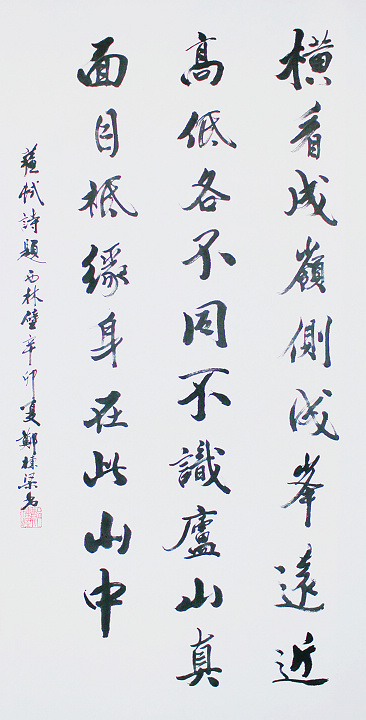 橫看成嶺側成峯遠近
高低各不同不識廬山真
面目祗緣身在此山中
蘇軾詩題西林壁辛卯夏鄭棟梁書